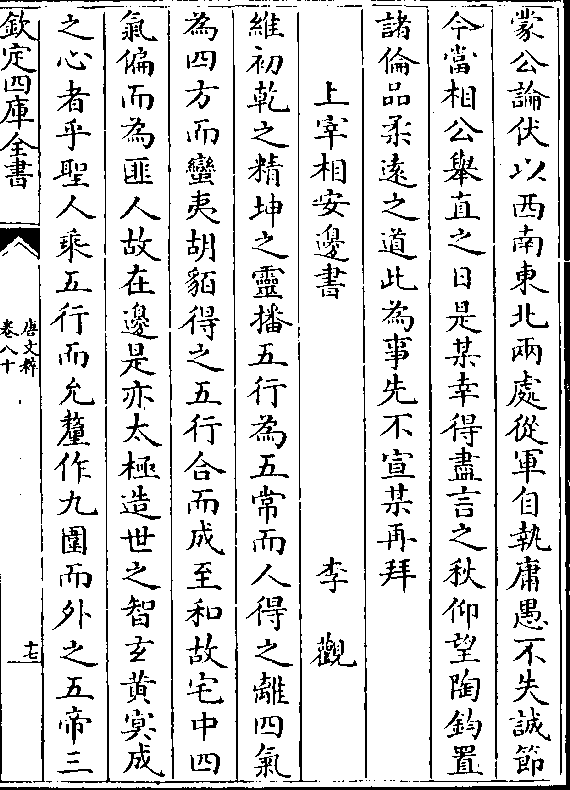 蒙公論伏以西南東北兩處從軍自執庸愚不失誠節
今當相公舉直之日是某幸得盡言之秋仰望陶鈞置
諸倫品柔遠之道此為事先不宣某再拜
上宰相安邊書　李觀
維初乾之精坤之靈播五行為五常而人得之離四氣
為四方而蠻夷胡貊得之五行合而成至和故宅中四
氣偏而為匪人故在邊是亦太極造世之智玄黃冥成
之心者乎聖人乘五行而允釐作九圍而外之五帝三
欽定四庫全書
唐文粹
卷八十
十七